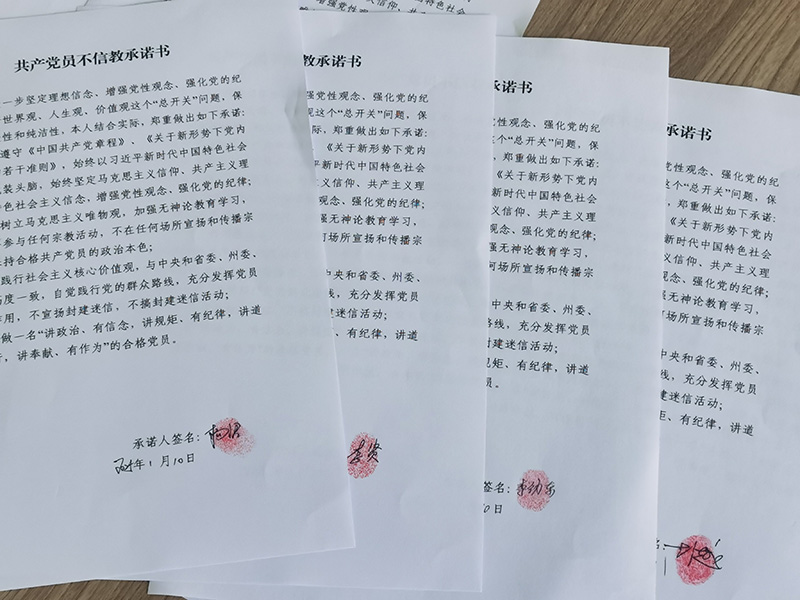 共产党员不信教承诺书
一步坚定理想信念、增强党性观念、强化党的纪
世界观、人生观、价值观这个“总开关”问题，保
性和纯洁性，本人结合实际，郑重做出如下承诺：
遵守《中国共产党章程》、《关于新形势下党内
若干准则》，始终以习近平新时代中国特色社会
装头脑，始终坚定马克思主义信仰、共产主义理
色社会主义信念，增强党性观念、强化党的纪律；
树立马克思主义唯物观，加强无神论教育学习，
参与任何宗教活动，不在任何场所宣扬和传播宗
持合格共产党员的政治本色；
践行社会主义核心价值观，与中央和省委、州委、
高度一致，自觉践行党的群众路线，充分发挥党员
作用，不宣扬封建迷信，不搞封建迷信活动；
做一名“讲政治、有信念，讲规矩、有纪律，讲道
，讲奉献、有作为”的合格党员。
承诺人签名：
年1月10日
教承诺书
党性观念、强化党的纪
观这个“总开关”问题，保
际，郑重做出如下承诺：
》、《关于新形势下党内
平新时代中国特色社会
主义信仰、共产主义理
性观念、强化党的纪律；
强无神论教育学习，
何场所宣扬和传播宗
与中央和省委、州委、
路线，充分发挥党员
封建迷信活动；
规矩、有纪律，讲道
党员。
承诺书
党性观念、强化党的纪
这个“总开关”问题，保
，郑重做出如下承诺：
《关于新形势下党内
新时代中国特色社会
义信仰、共产主义理
观念、强化党的纪律；
无神论教育学习，
何场所宣扬和传播宗
与中央和省委、州委、
路线，充分发挥党员
封建迷信活动；
规矩、有纪律，讲道
员。
签名：
0日
承诺书
党性观念、强化党的纪
这个“总开关”问题，保
郑重做出如下承诺：
《关于新形势下党内
新时代中国特色社会
义信仰、共产主义理
观念、强化党的纪律；
无神论教育学习，
场所宣扬和传播宗
与中央和省委、州委、
线，充分发挥党员
建迷信活动；
矩、有纪律，讲道